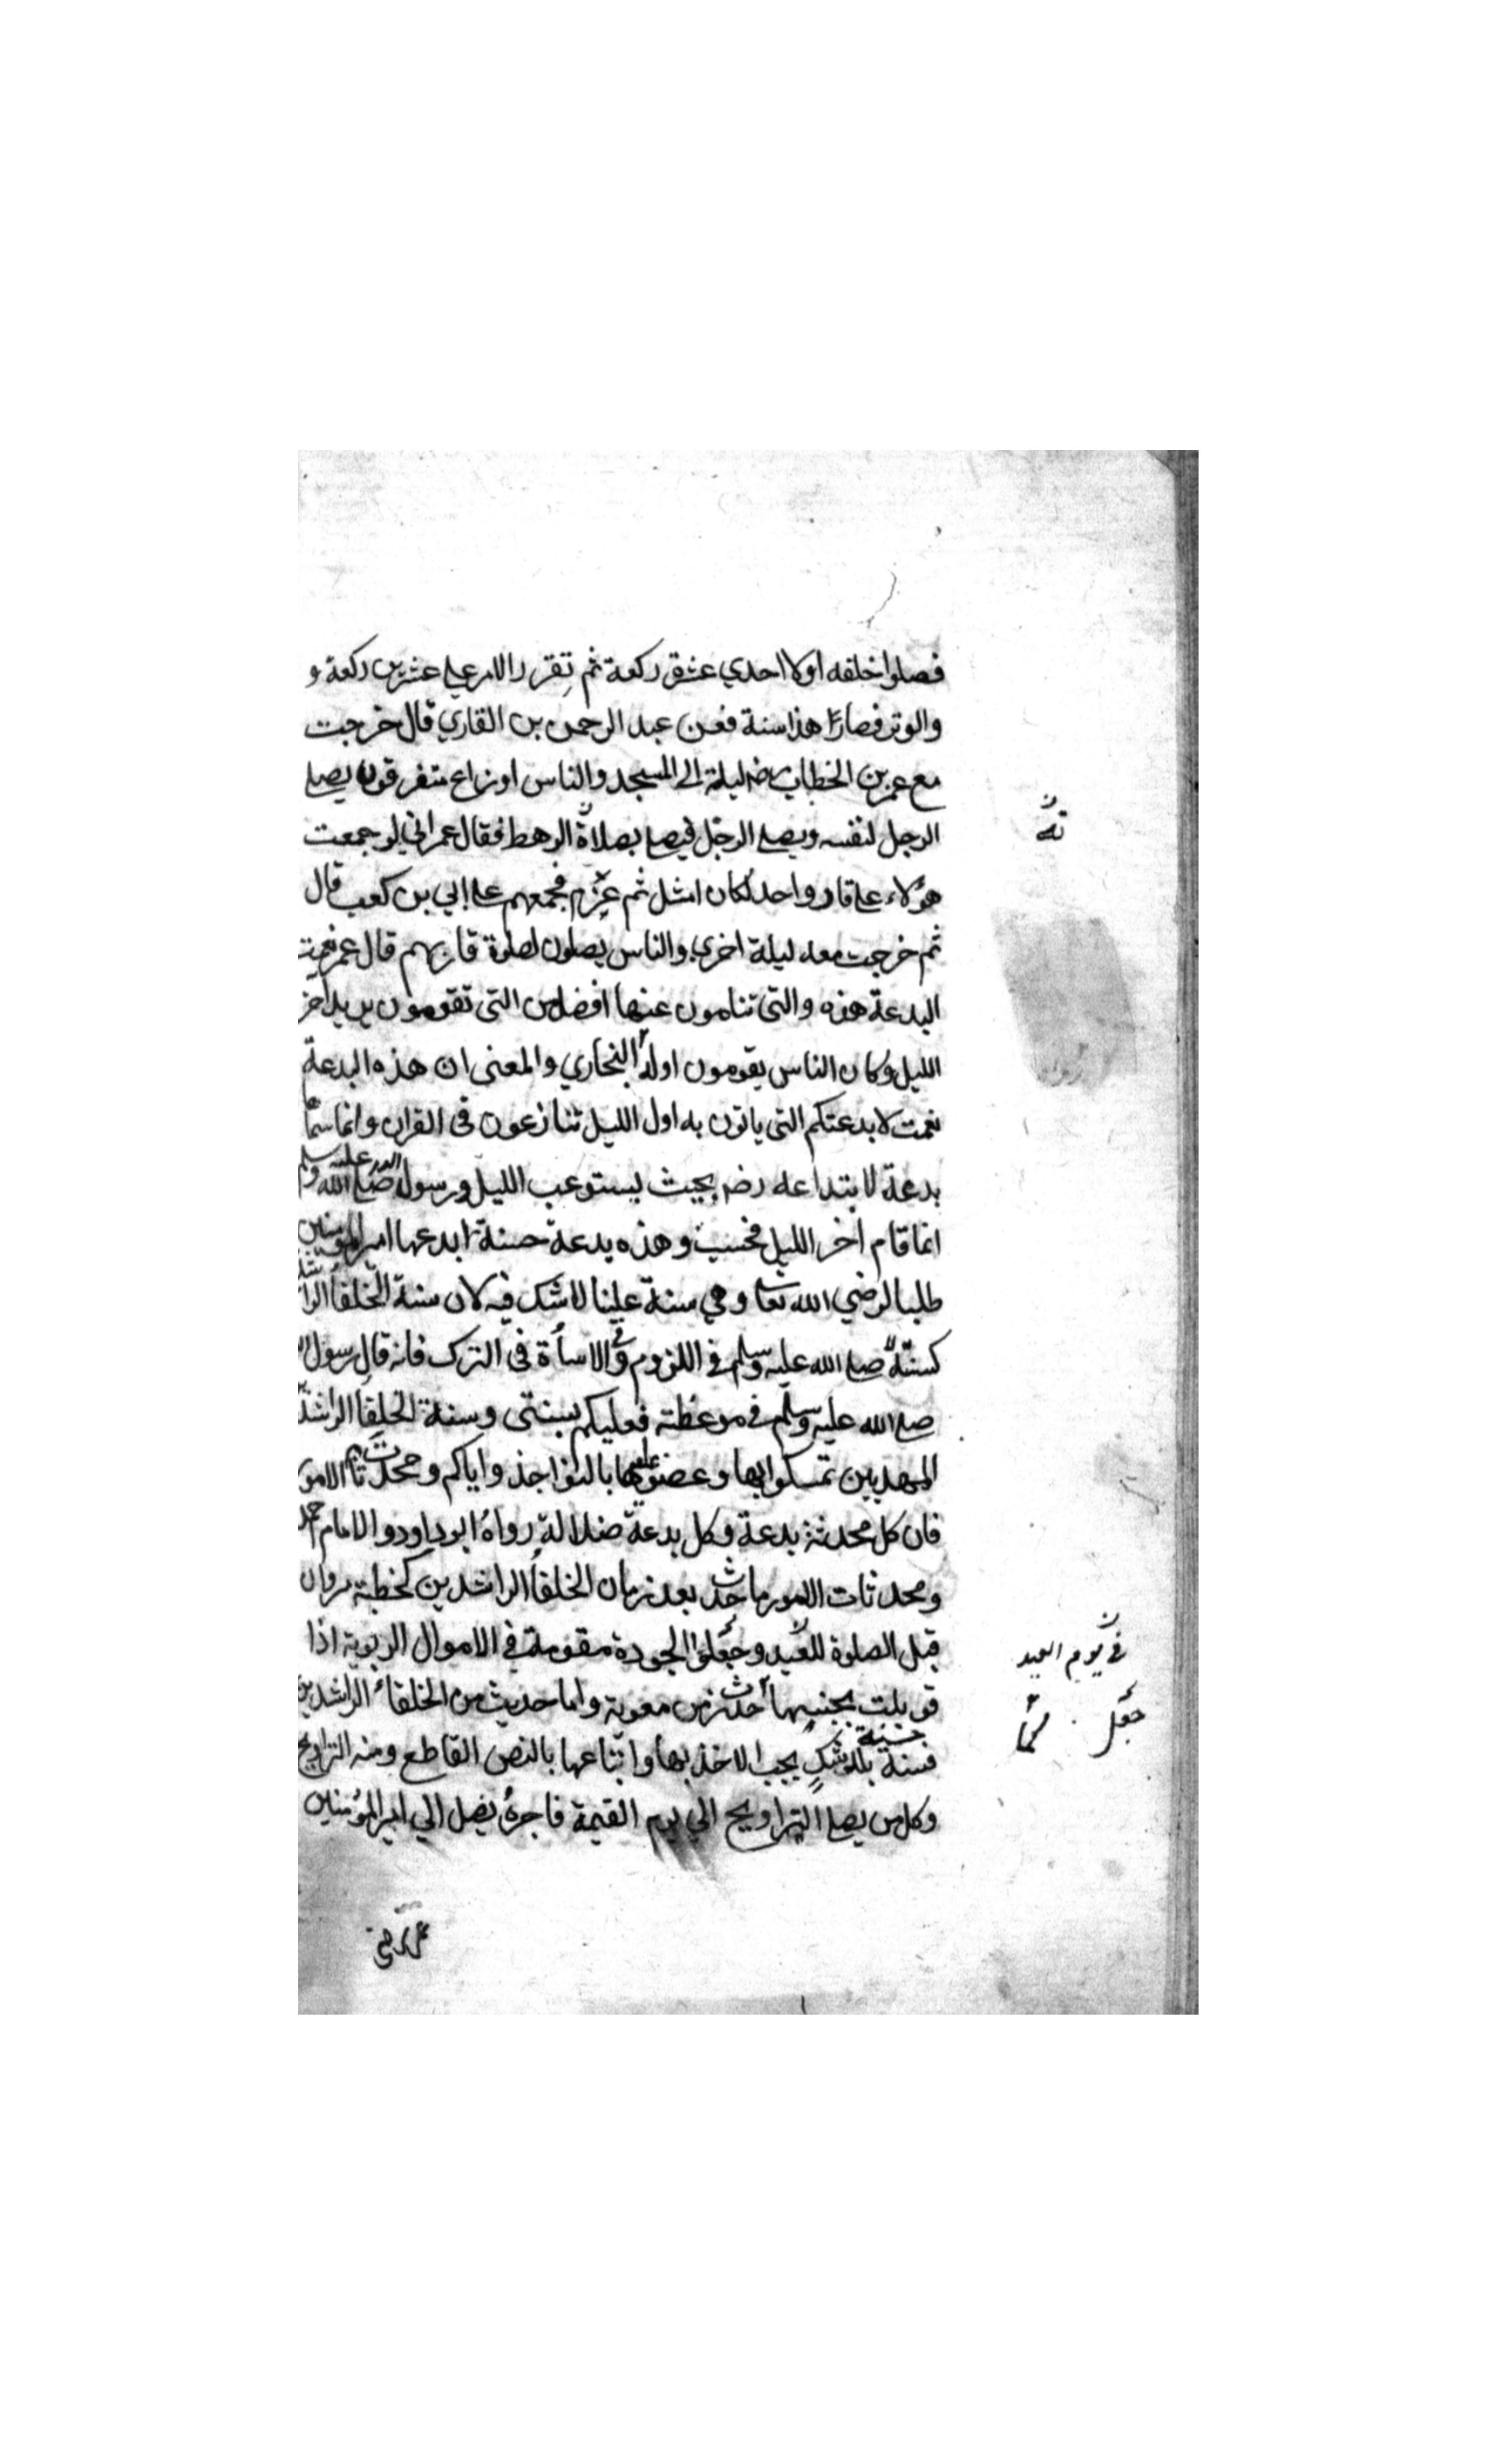 فصلوا خلفه اولا احدي عشرة ركعة ثم تقرر الامر علي عشرين ركعة و
والوتر فصار هذا سنة فعن عبد الرحمن بن القاري قال خرجت
مع عمر بن الخطاب رضه ليلة الى المسجد والناس اوزاع متفرقون يصلي
الرجل لنفسه ويصلي الرجل فيصلي بصلاة الرهط فقال عمر اني لو جمعت
هؤلاء علي قار واحد لكان امثل ثم عزم فجمعهم علي ابي بن كعب قال
ثم خرجت معه ليلة اخري والناس يصلون لصلوة قاريهم قال عمر نعمت
البدعة هذه والتي تنامون عنها افضل من التي تقومون يريد آخر
الليل وكان الناس يقومون اوله البخاري والمعنى ان هذه البدعة
نعمت لا بدعتكم التي ياتون به اول الليل تنازعون في القران وانما سماها
بدعة لابتداعه رضه بحيث يستوعب الليل ورسول الله صلى الله عليه وسلم
انما قام آخر الليل فحسب وهذه بدعة حسنة ابدعها امير المؤمنين
طلبا لرضي الله تعا وهي سنة علينا لا شك فيه لان سنة الخلفاء الراشد
كسنته صلي الله عليه وسلم في اللزوم وفي الاسأة في الترك فانه قال رسول
صلي الله عليه وسلم في موعظته فعليكم بسنتى وسنة الخلفا الراشد
المهديين تمسكوا بها وعضوا عليها بالنواجذ واياكم ومحدثات الامور
فان كل محدثة بدعة وكل بدعة ضلالة رواه ابو داود والامام احمد
ومحدثات الامور ما حدث بعد زمان الخلفاء الراشدين كخطبة مروان
قبل الصلوة للعيد وجعلوا الجودة مقومة في الاموال الربوية اذا
قوبلت بجنسها احدث زمن معوية واما حديث من الخلفاء الراشدين
فسنة حسنة بلا شك يجب الاخذ بها واتباعها بالنص القاطع ومنه التراويح
وكل من يصلي التراويح الي يوم القيمة فاجره يصل الي امير المؤمنين
ته
في يوم العيد
جعل